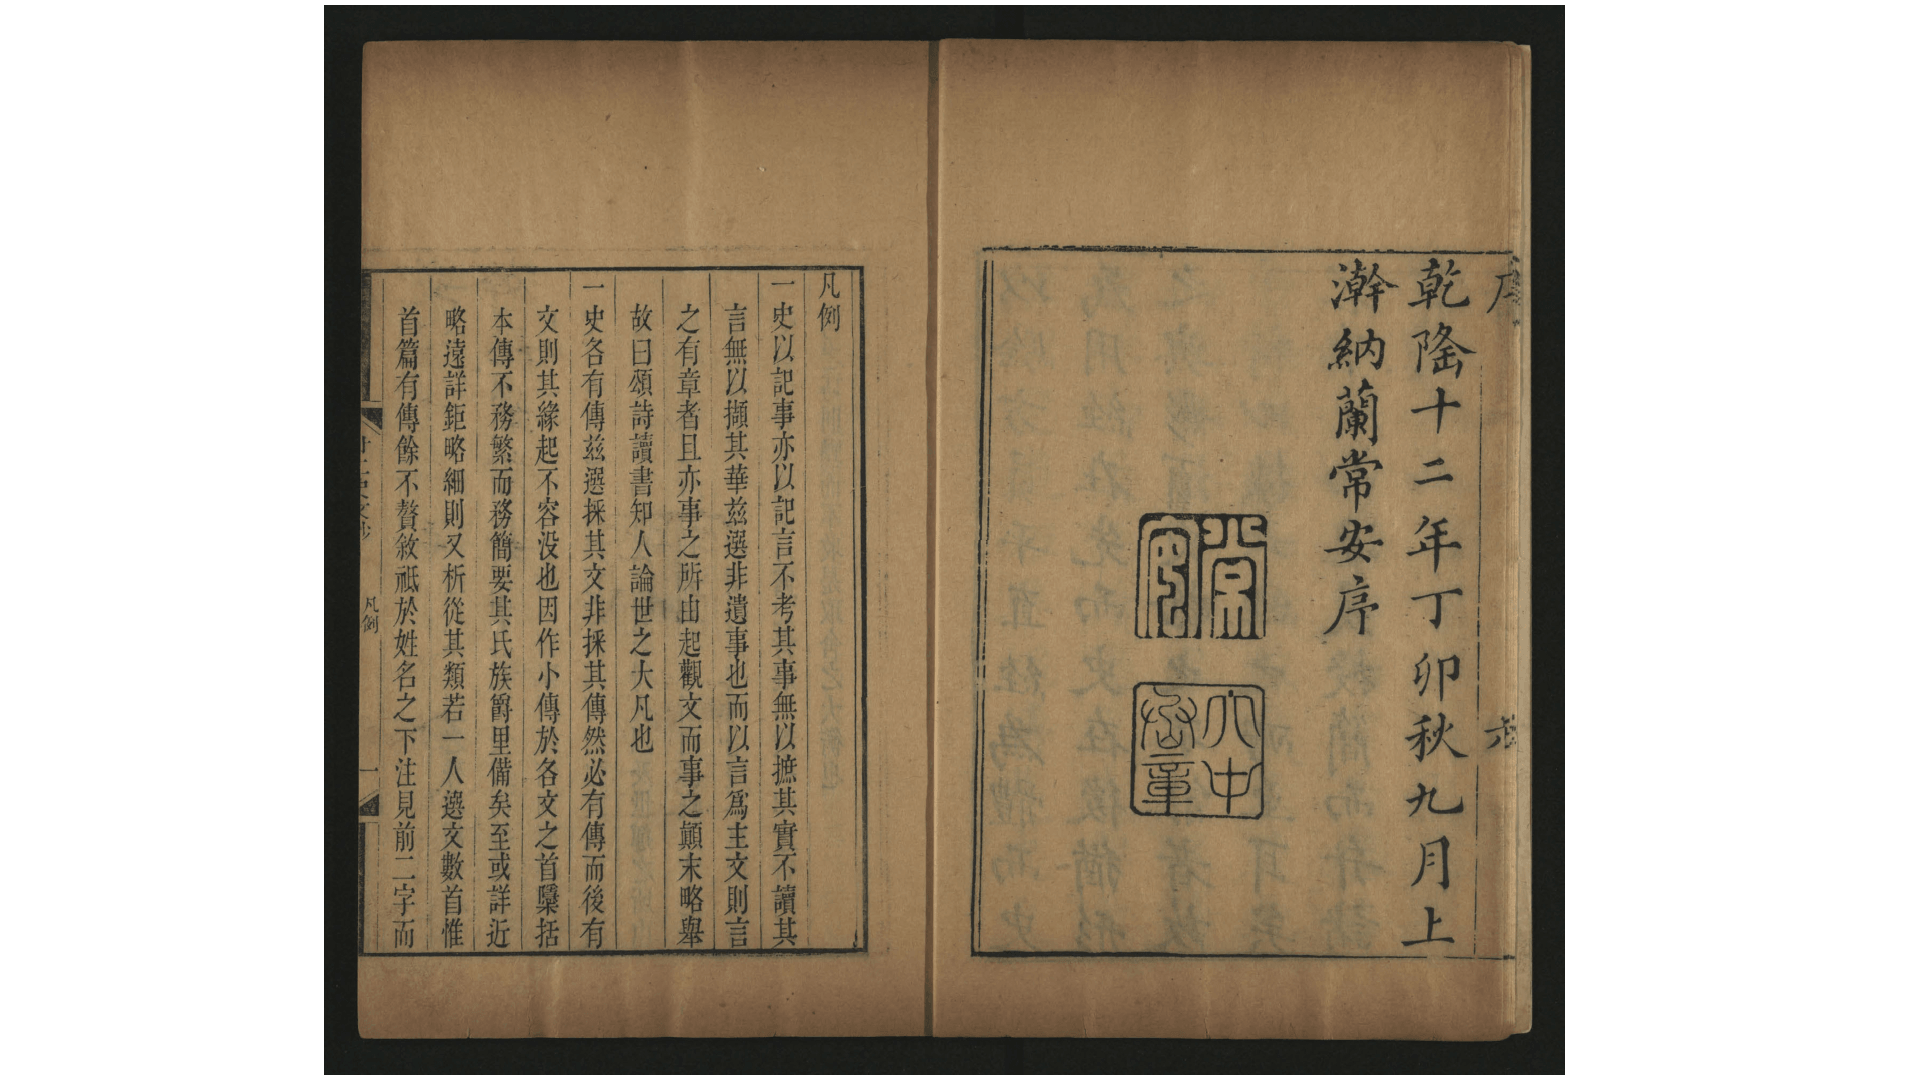 序
乾隆十二年丁卯秋九月上
澣納蘭常安序
常安
凡例
一史以記事亦以記言不考其事無以摭其實不讀其
言無以擷其華茲選非遺事也而以言爲主文則言
之有章者且亦事之所由起觀文而事之顚末略舉
故曰頌詩讀書知人論世之大凡也
一史各有傳茲選採其文非採其傳然必有傳而後有
文則其緣起不容没也因作小傳於各文之首櫽括
本傳不務繁而務簡要其氏族爵里備矣至或詳近
略遠詳鉅略細則又析從其類若一人選文數首惟
首篇有傳餘不贅敘祗於姓名之下注見前二字而
廿二史文鈔
凡例
一